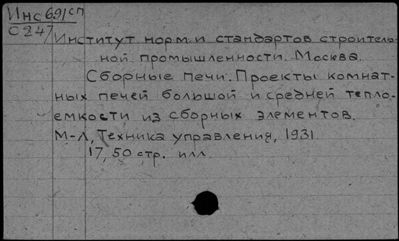 Инс 69/сп
С 247
Институт норм и стандартов строитель-
ной промышленности. Москва.
Сборные печи. Проекты комнат-
ных печей большой и средней тепло-
емкости из сборных элементов.
М-Л, Техника управления, 1931
17, 50 стр. илл.